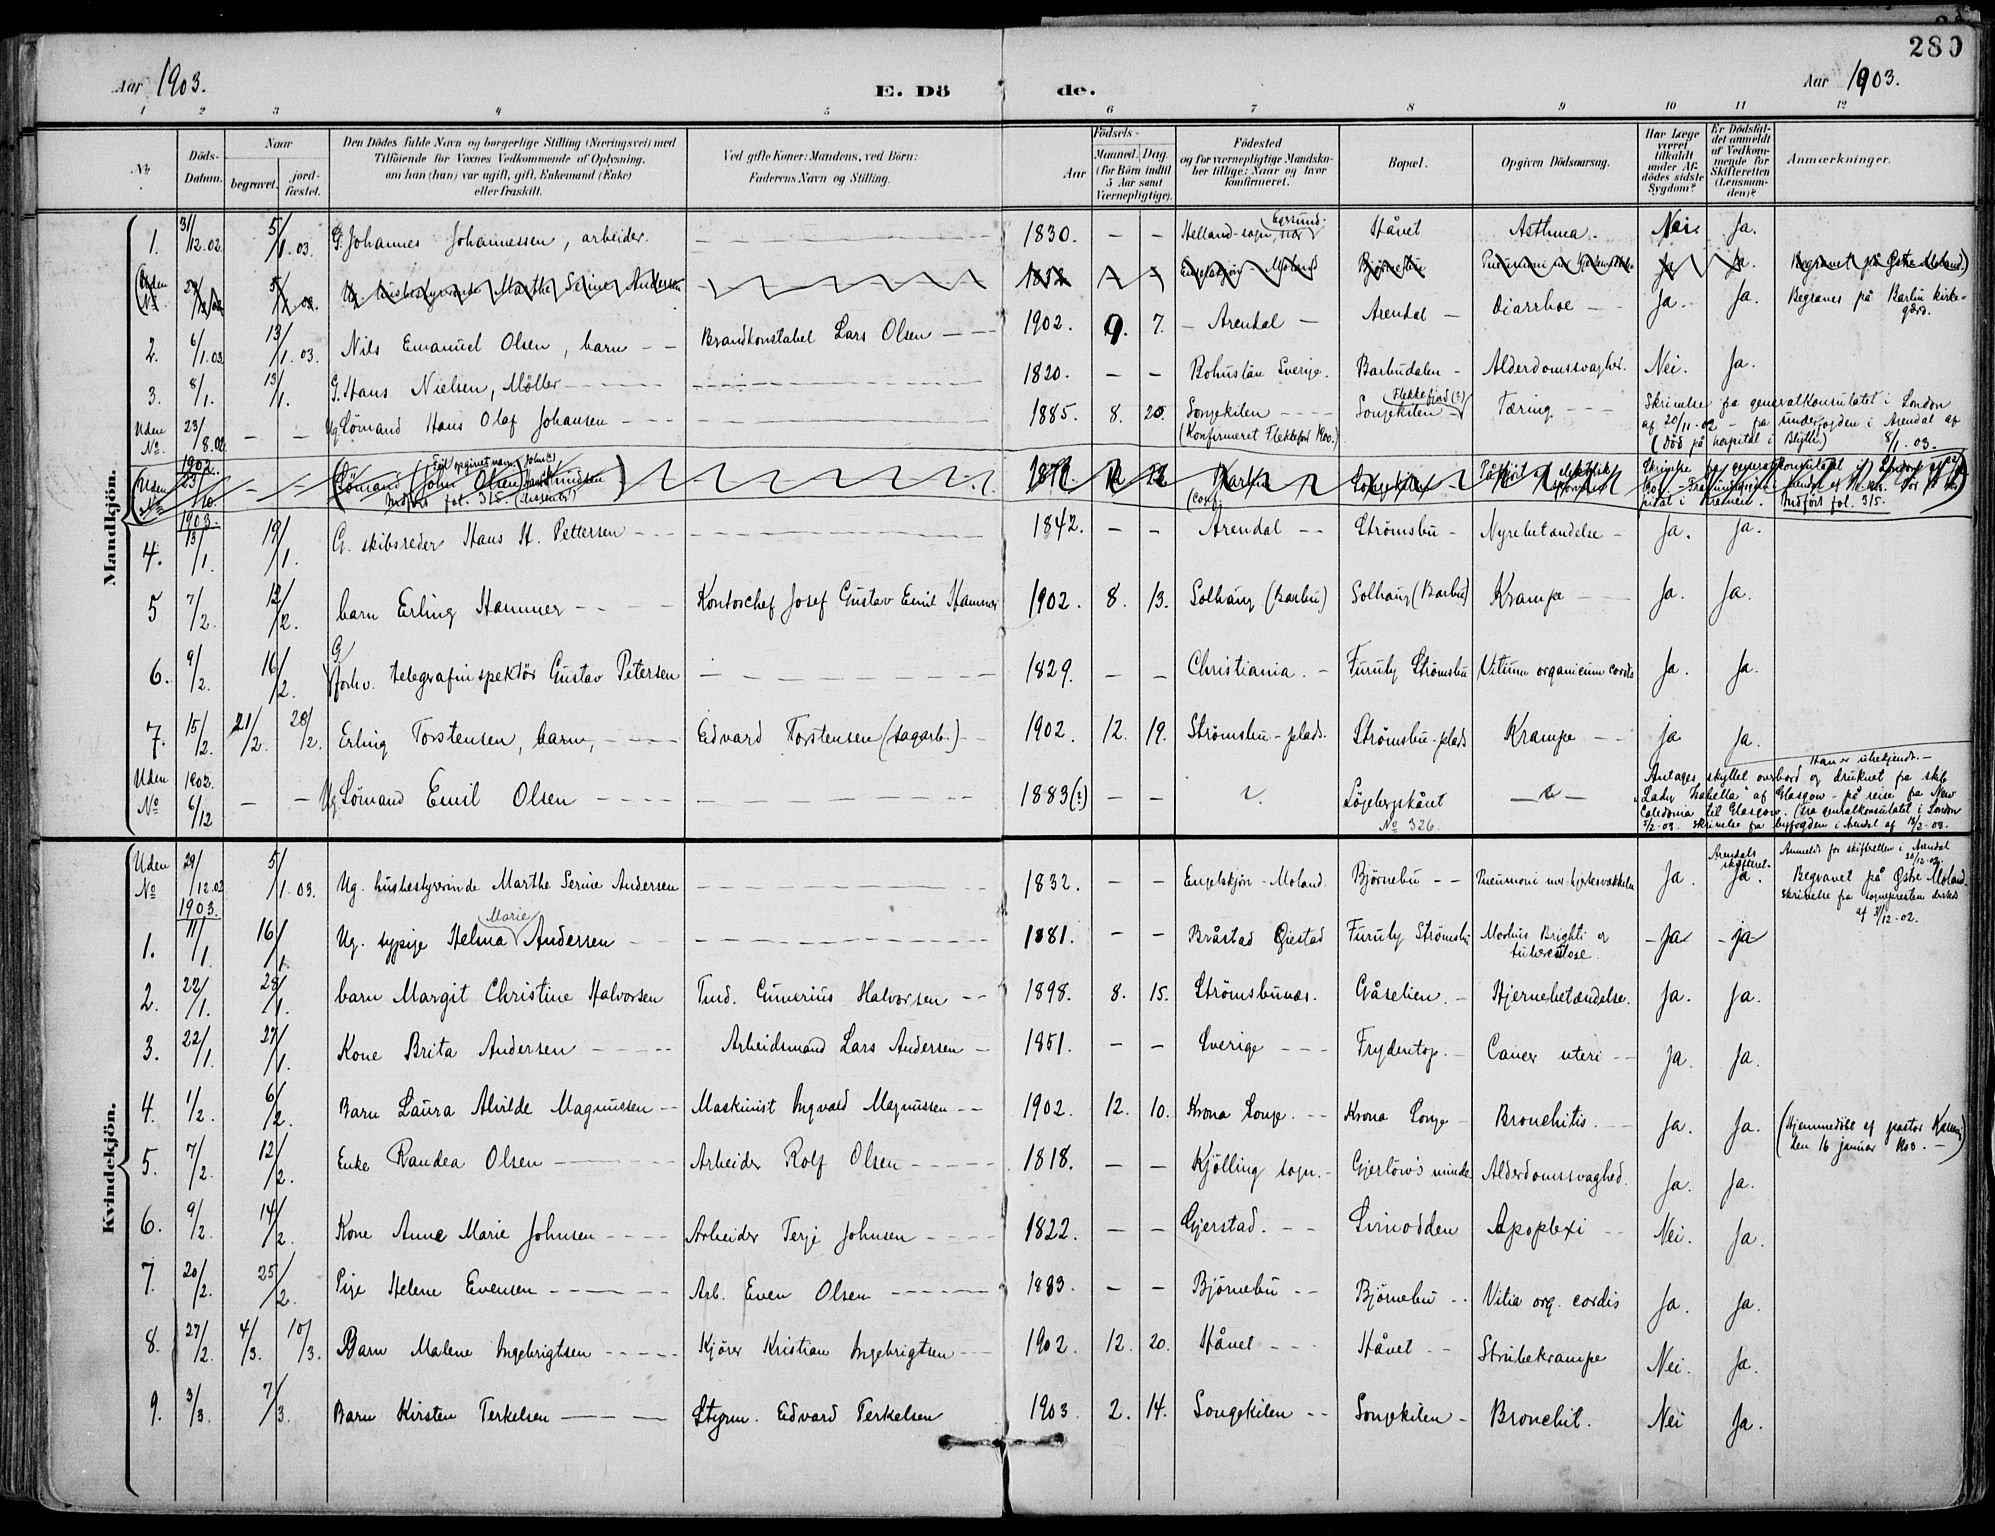 280
Aar 1903.
E. Dö de.
Aar 1903.
1 2 3 4 5 6 7 8 9 10 11 12
No.
Döds-Datum.
Naar
begravet.
jord-fæstet.
Den Dödes fulde Navn og borgerlige Stilling (Næringsvei) med
Tilföiende for Voxnes Vedkommende af Oplysning,
om han (hun) var ugift, gift, Enkemand (Enke)
eller fraskilt.
Ved gifte Koner: Mandens, ved Börn:
Faderens Navn og Stilling.
Födsels-
Aar
Maaned. Dag.
(for Börn indtil
5 Aar samt
Værnepligtige).
Födested
og for værnepligtige Mandska-
ber tillige: Naar og hvor
konfirmeret.
Bopæl.
Opgiven Dödsaarsag.
Har Læge
været
tilkaldt
under Af-
dödes sidste
Sygdom?
Er Dödsfal-
det anmeldt
af Vedkom-
mende for
Skifteretten
(Lensman-
den)?
Anmærkninger.
Mandkjön.
1. 31/12.02 5/1.03. G. Johannes Johannessen, arbeider. 1830. — — Helland-sogn, Egersund. Håvet Asthma. Nei. Ja.
Uden No. 5/1 03. Ug. husbestyrerinde Marthe Serine Andersen 1832 Engelskjøn - Moland Bjørnebu Ja Ja. Begravet på Østre Moland.)
2. 6/1.03 13/1.03. Nils Emanuel Olsen, barn — — Brandkonstabel Lars Olsen — — 1902. 9. 7. — Arendal — Arendal — Diarrhoe — — Ja. Ja. Begraves på Barbu kirke-gård.
3. 8/1. 13/1. G. Hans Nielsen, Møller 1820. — — Bohuslän Sverige. Barbudalen — Alderdomssvaghed. Nei. Ja.
Uden No. 23/8.02 — — Ug. Sømand Hans Olaf Johansen 1885. 8. 20. Songekilen (Konfirmeret Flekkefjord 1900.) Songekilen Flekkefjord (?) Tæring Skrivelse fra generalkonsulatet i London
af 20/11-02 — fra underfogden i Arendal af
(Død på hospital i Blythe) 8/1.03.
1902.
Uden No 23/10. — — (Sømand (John Olsen) Indført fol. 315. Songekilen Skrivelse fra generalkonsulatet i London
Indført fol. 315.
1903.
4. 13/1. 19/1. G. skibsreder Hans H. Pettersen 1842. — — Arendal — — Strømsbu — Nyrebetændelse — Ja. Ja.
5 7/2. 12/2. barn Erling Hammer Kontorchef Josef Gustav Emil Hammer 1902. 8. 13. Solhaug (Barbu) Solhaug (Barbu) Krampe Ja. Ja.
6. 9/2. 16/2. G forhv. telegrafinspektør Gustav Petersen 1829. — — Christiania. — Furuly Strømsbu Vitium organicum cordis Ja. Ja.
7. 15/2. 21/2. 28/2. Erling Torstensen, barn, Edvard Torstensen (sagarb.) 1902. 12. 19. Strømsbu-plads. Strømsbu-plads Krampe — — ja ja.
Uden No 1902. 6/12 — — Ug. Sømand Emil Olsen 1883(?) — — ?. Løgebergskåret No 326. — ? — Han er ubekjendt. —
Antages skyllet overbord og druknet fra skib
"Lady Isabella" af Glasgow — på reise fra New
Caledonia til Glasgow. (fra generalkonsulatet i London
5/2-03. skrivelse fra byfogden i Arendal af 13/2-03.
Kvindekjön.
Uden No 29/12.02 5/1.03. Ug. husbestyrerinde Marthe Serine Andersen 1832. — — Engelskjøn - Moland. Bjørnebu — — Pneumoni mor. hjertesvækkelse Ja. Arendals skifteret. Ja. Anmeldt for skifteretten i Arendal
Begravet på Østre Moland.
skrivelse fra sognepresten dersteds
af 31/12-02.
1903.
1. 11/1. 16/1. Ug. sypige Helma Marie Andersen 1881. — — Bråstad Øiestad Furuly Strømsbu Morbus Brighti og tuberculose. — Ja — ja
2. 22/1. 28/1. barn Margit Christine Halvorsen Tmd. Gunerius Halvorsen — — 1898. 8. 15. Strømsbunæs. Gåselien. — Hjernebetændelse. Ja. Ja.
3. 22/1. 27/1. Kone Brita Andersen Arbeidsmand Lars Andersen — 1851. — — Sverige Frydentop. — Cancer uteri — — Ja. Ja.
4. 1/2. 6/2. Barn Laura Alvilde Magnussen — — Maskinist Ingvald Magnussen — — 1902. 12. 10. Krona Songe. — — Krona Songe — Bronchitis. Ja. Ja. (Hjemmedøbt af pastor
den 16 januar 1903. —)
5. 7/2. 12/2. Enke Randea Olsen Arbeider Rolf Olsen 1818. — — Kjølling sogn. — Gjerløw's minde Alderdomssvaghed. Ja. Ja.
6. 9/2. 14/2. Kone Anne Marie Johnsen Arbeider Terje Johnsen 1822. — — Gjerstad. — — Svinodden Apoplexi — — Nei. Ja.
7. 20/2. 25/2. Pige Helene Evensen Arb. Even Olsen 1883. — — Bjørnebu — — Bjørnebu — Vitia org. cordis Ja. Ja.
8. 27/2. 4/3. 10/3. Barn Malene Ingebrigtsen Kjører Kristian Ingebrigtsen 1902. 12. 20. Håvet Håvet — — Strubekrampe Nei. Ja.
9. 3/3. 7/3. Barn Kirsten Terkelsen Styrm. Edvard Terkelsen 1903. 2. 14. Songekilen — — Songekilen — Bronchit. Nei Ja.